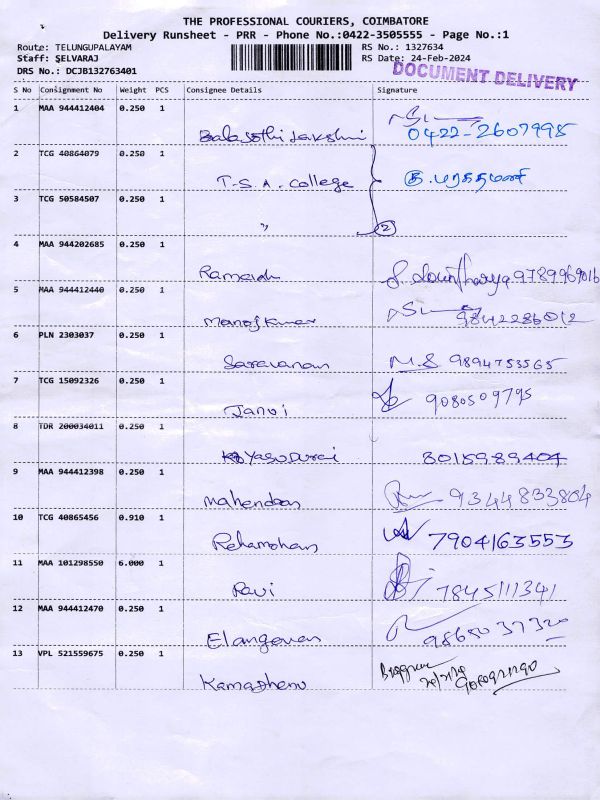 THE PROFESSIONAL COURIERS, COIMBATORE
Delivery Runsheet - PRR - Phone No.:0422-3505555 - Page No.:1
Route: TELUNGUPALAYAM RS No.: 1327634
Staff: SELVARAJ RS Date: 24-Feb-2024
DRS No.: DCJB132763401 DOCUMENT DELIVERY
S No Consignment No Weight PCS Consignee Details Signature
1 MAA 944412404 0.250 1
0422-2607995
2 TCG 40864079 0.250 1
T.S.A. College
3 TCG 50584507 0.250 1
" 2
4 MAA 944202685 0.250 1
Ramesh 9789969016
5 MAA 944412440 0.250 1
Manojkumar 9842286012
6 PLN 2303037 0.250 1
Saravanan M.S 9894753565
7 TCG 15092326 0.250 1
Janvi 9080509795
8 TDR 200034011 0.250 1
Yasodurai 8015989404
9 MAA 944412398 0.250 1
Mahendran 9344833804
10 TCG 40865456 0.910 1
Rehamohan 7904163553
11 MAA 101298550 6.000 1
Ravi 7845111341
12 MAA 944412470 0.250 1
Elangovan 9865037320
13 VPL 521559675 0.250 1
Kamadhenu